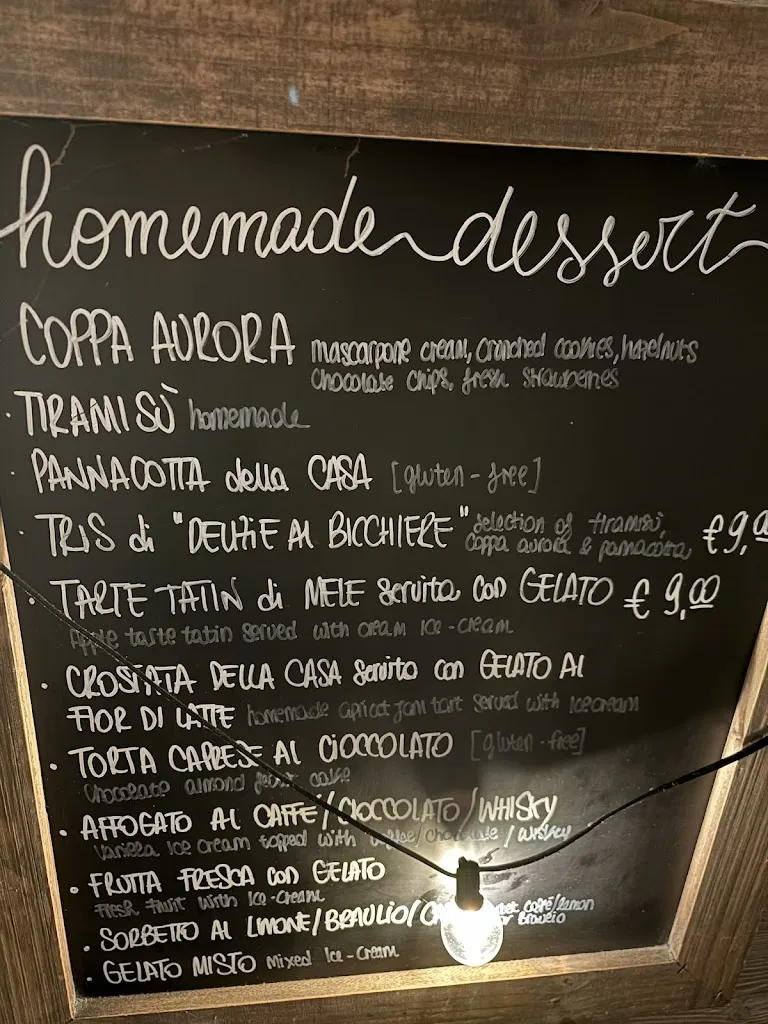 homemade dessert
COPPA AURORA mascarpone cream, crunched cookies, hazelnuts
chocolate chips, fresh strawberries
· TIRAMISÙ homemade
· PANNACOTTA della CASA [gluten-free]
· TRIS di "DELIZIE AL BICCHIERE" selection of tiramisù, €9,00
coppa aurora & pannacotta
· TARTE TATIN di MELE servita con GELATO € 9,00
Apple tarte tatin served with cream Ice-cream
· CROSTATA DELLA CASA servita con GELATO AL
FIOR DI LATTE homemade apricot jam tart served with Icecream
· TORTA CAPRESE AL CIOCCOLATO [gluten-free]
Chocolate almond cake
· AFFOGATO AL CAFFÈ/CIOCCOLATO/WHISKY
Vanilla Ice cream topped with coffee/chocolate/whiskey
· FRUTTA FRESCA con GELATO
Fresh fruit with Ice-cream
· SORBETTO AL LIMONE/BRAULIO/ caffè/lemon
Braulio
· GELATO MISTO mixed Ice-cream